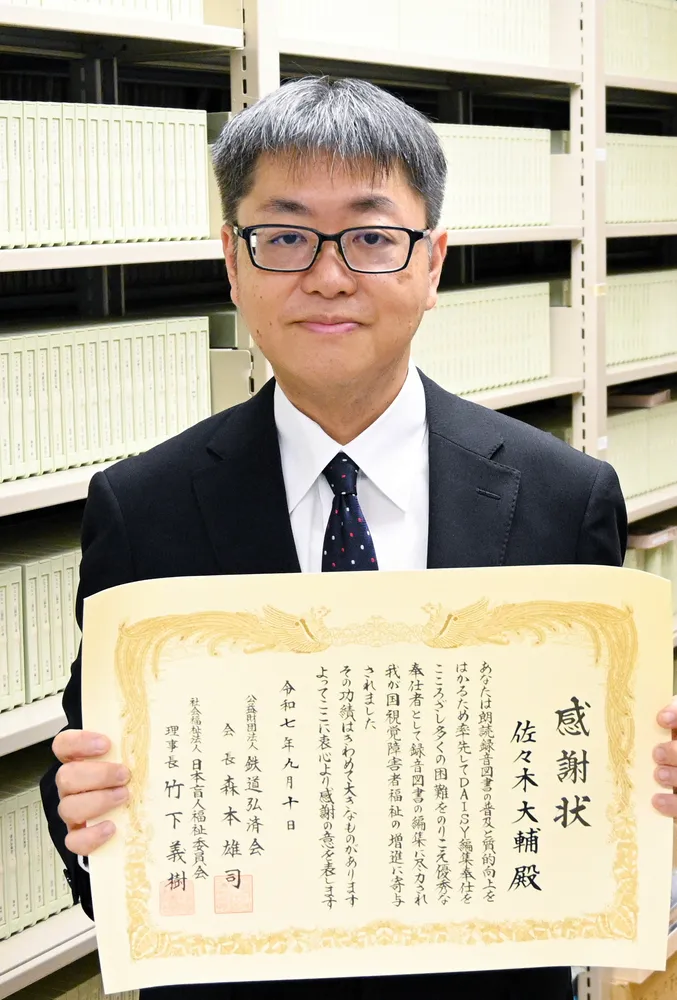 感謝状
佐々木大輔殿
あなたは朗読録音図書の普及と質的向上を
はかるため率先してDAISY編集奉仕を
こころざし多くの困難をのりこえ優秀な
奉仕者として録音図書の編集に尽力され
我が国視覚障害者福祉の増進に寄与
されました
その功績はきわめて大きなものがあります
よってここに衷心より感謝の意を表します
令和七年九月十日
公益財団法人 鉄道弘済会
会長 森本雄司
社会福祉法人 日本盲人福祉委員会
理事長 竹下義樹